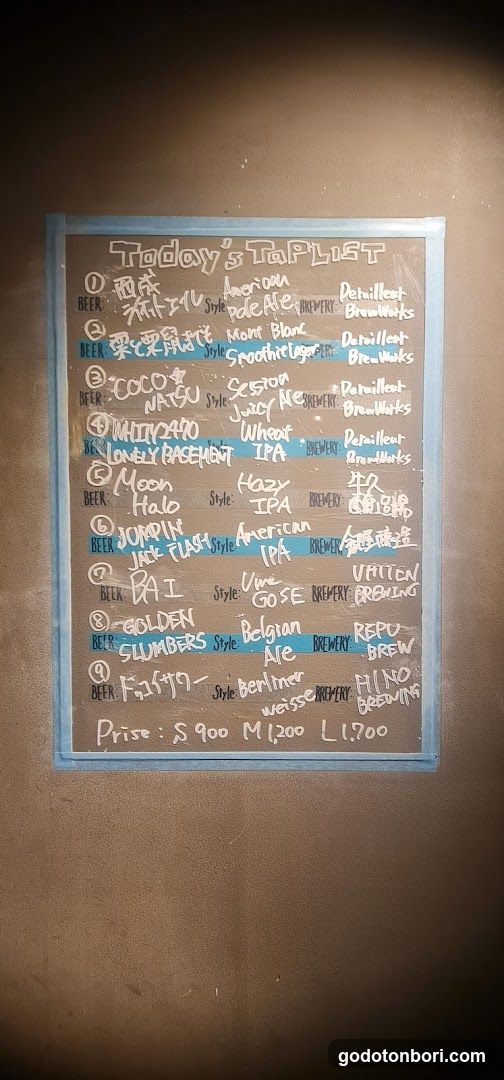 Today's TAPLIST
① 西成 American
BEER: ライオットエール Style: Pale Ale BREWERY: Derailleur BrewWorks
② Mont Blanc Derailleur
BEER: 栗と栗鼠 Style: Smoothie Lager BrewWorks
③ COCO Session Derailleur
BEER: NATSU Style: Juicy Ale BREWERY: BrewWorks
④ Wheat Derailleur
LONELY BACEMENT IPA BrewWorks
⑤ Moon Hazy 牛久
BEER: Halo Style: IPA BREWERY:
⑥ JUMPIN American
BEER: JACK FLASH Style: IPA BREWERY:
⑦ Ume
BEER: BAI Style: GOSE BREWERY: BREWING
⑧ GOLDEN Belgian REPU
BEER: SLUMBERS Style: Ale BREWERY: BREW
⑨ Berliner HINO
BEER: ドッコイサワー Style: weisse BREWERY: BREWING
Prise: S 900 M 1,200 L 1,700
godotonbori.com